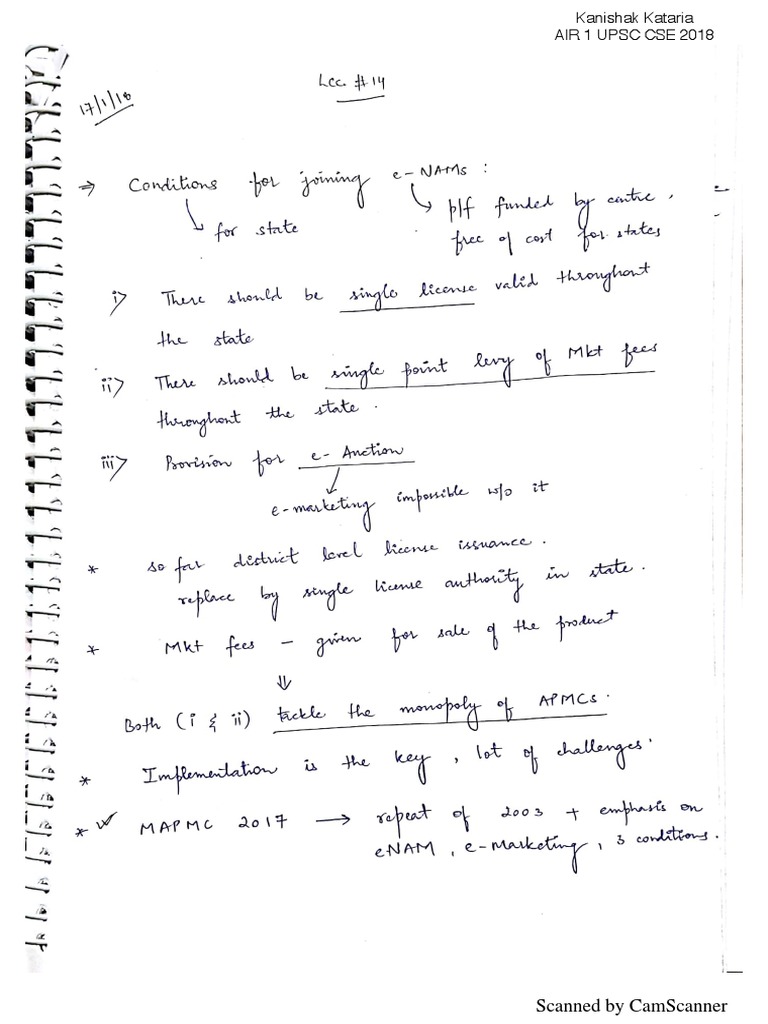 Kanishak Kataria
AIR 1 UPSC CSE 2018
Lec. #14
17/1/18
⇒ Conditions for joining e-NAMs :
↳ for state
↳ p/f funded by centre,
free of cost for states
i> There should be single license valid throughout
the state
ii> There should be single point levy of Mkt fees
throughout the state.
iii> Provision for e-Auction
↓
e-marketing impossible w/o it
* so far district level license issuance.
replace by single license authority in state.
* Mkt fees - given for sale of the product
⇓
Both (i & ii) tackle the monopoly of APMCs.
* Implementation is the key, lot of challenges.
* ✓ MAPMC 2017 → repeat of 2003 + emphasis on
eNAM, e-Marketing, 3 conditions.
Scanned by CamScanner